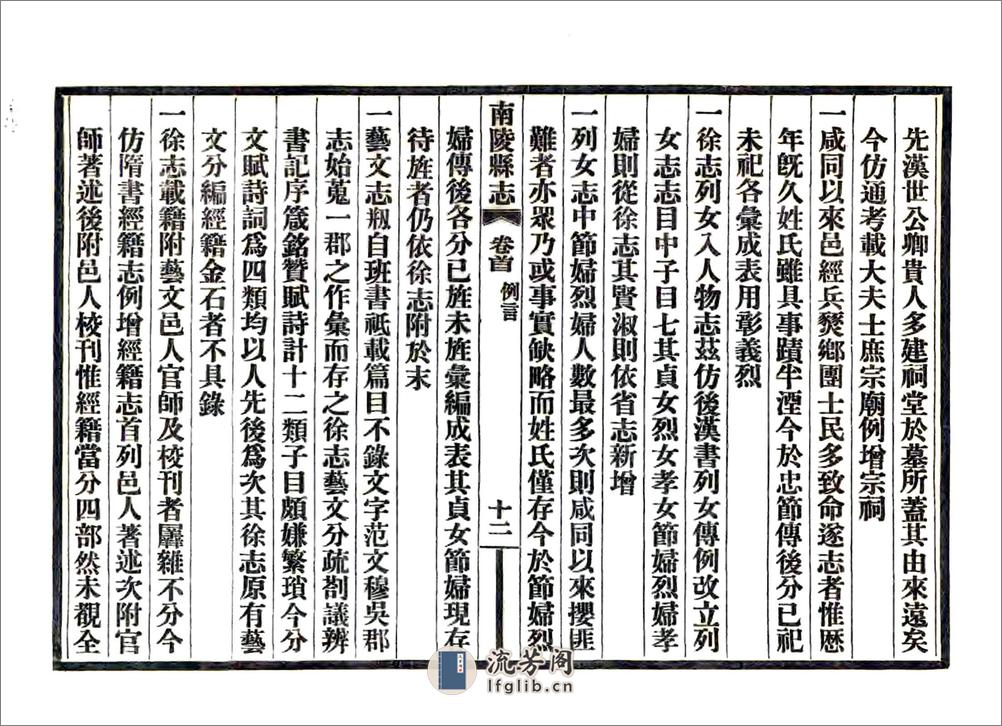 先漢世公卿貴人多建祠堂於墓所蓋其由來遠矣
今仿通考載大夫士庶宗廟例增宗祠
一咸同以來邑經兵燹鄉團士民多致命遂志者惟歷
年旣久姓氏雖具事蹟半湮今於忠節傳後分已祀
未祀各彙成表用彰義烈
一徐志列女入人物志茲仿後漢書列女傳例改立列
女志志目中子目七其貞女烈女孝女節婦烈婦孝
婦則從徐志其賢淑則依省志新增
一列女志中節婦烈婦人數最多次則咸同以來攖匪
難者亦眾乃或事實缺略而姓氏僅存今於節婦烈
南陵縣志 卷首 例言 十二
婦傳後各分已旌未旌彙編成表其貞女節婦現存
待旌者仍依徐志附於末
一藝文志瓶自班書祇載篇目不錄文字范文穆吳郡
志始蒐一郡之作彙而存之徐志藝文分疏劄議辨
書記序箴銘贊賦詩計十二類子目頗嫌繁瑣今分
文賦詩詞爲四類均以人先後爲次其徐志原有藝
文分編經籍金石者不具錄
一徐志載籍附藝文邑人官師及校刊者羼雜不分今
仿隋書經籍志例增經籍志首列邑人著述次附官
師著述後附邑人校刊惟經籍當分四部然未覩全
流芳阁
lfglib.cn